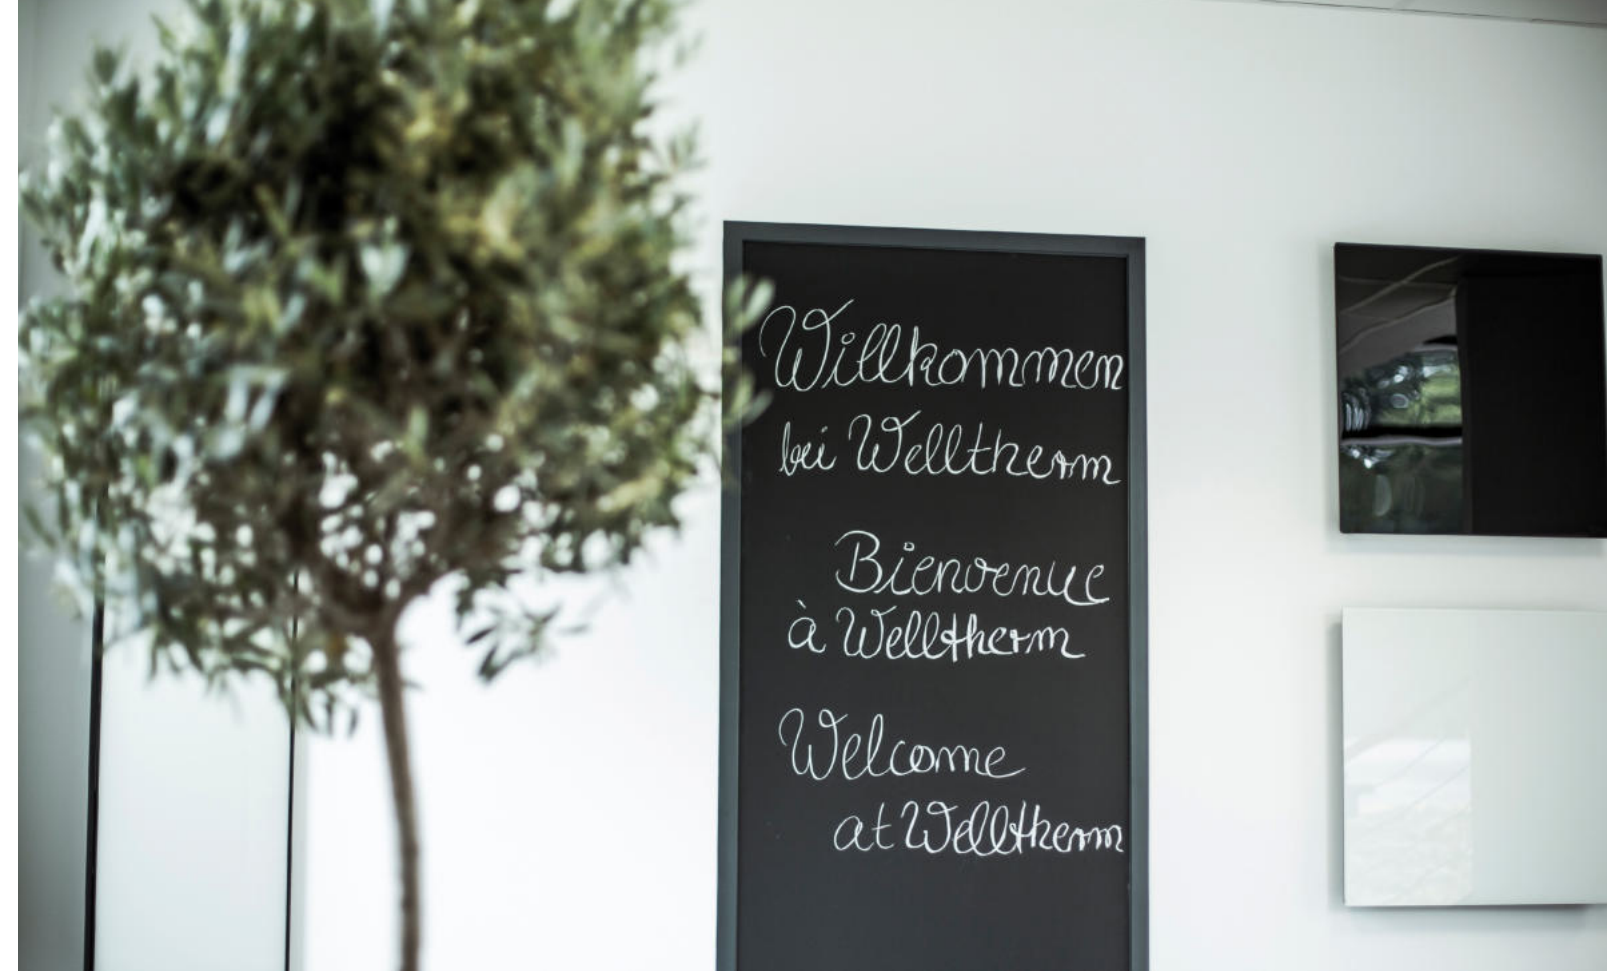 Willkommen
bei Welltherm
Bienvenue
à Welltherm
Welcome
at Welltherm